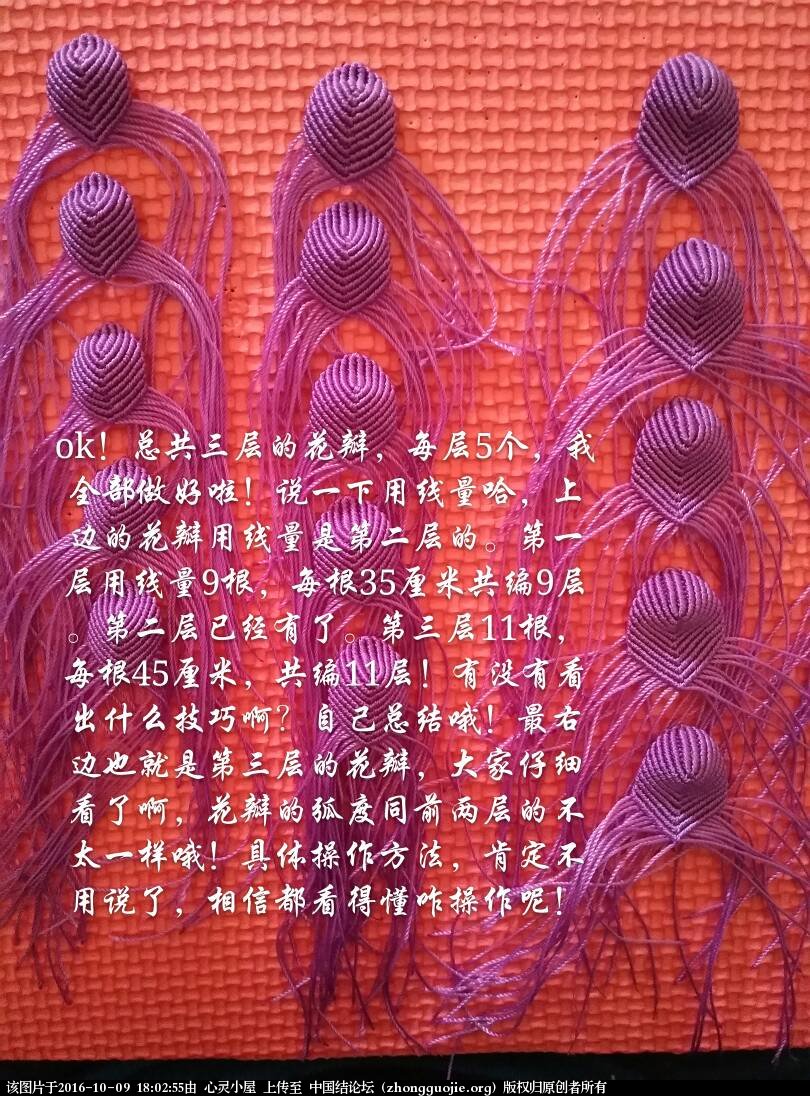 ok！总共三层的花瓣，每层5个，我
全部做好啦！说一下用线量哈，上
边的花瓣用线量是第二层的。第一
层用线量9根，每根35厘米共编9层
。第二层已经有了。第三层11根，
每根45厘米，共编11层！有没有看
出什么技巧啊？自己总结哦！最右
边也就是第三层的花瓣，大家仔细
看了啊，花瓣的弧度同前两层的不
太一样哦！具体操作方法，肯定不
用说了，相信都看得懂咋操作呢！
该图片于2016-10-09 18:02:55由 心灵小屋 上传至 中国结论坛 (zhongguojie.org) 版权归原创者所有